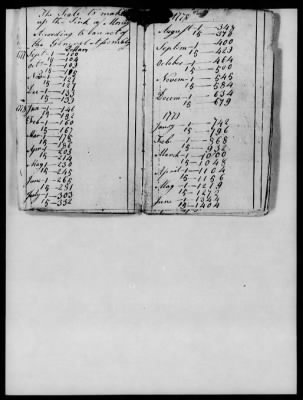 The Scale to make
up the Sink of Money
According to ban act of
the General Assembly
Dollars
1777 Sept 1 — 100
15 — 104
Oct 1 — 109
15 —
Nov 1 —
15 — 127
Dec 1 —
15 — 137
1778 Jan 1 — 146
15 —
Feb 1 — 160
15 — 167
Mar 1 — 175
15 —
April 1 — 203
15 — 214
May 1 — 230
15 — 245
June 1 — 265
15 — 281
July 1 — 303
15 — 332
1778
August 1 — 348
15 — 376
Septem 1 — 400
15 — 423
October 1 — 464
15 — 500
Novem 1 — 545
15 — 584
Decem 1 — 634
15 — 679
1779
Janry 1 — 742
15 — 796
Feb 1 — 868
15 — 932
March 1 — 1000
15 — 1048
April 1 — 1104
15 — 1156
May 1 — 1219
15 — 1272
June 1 — 1344
15 — 1404